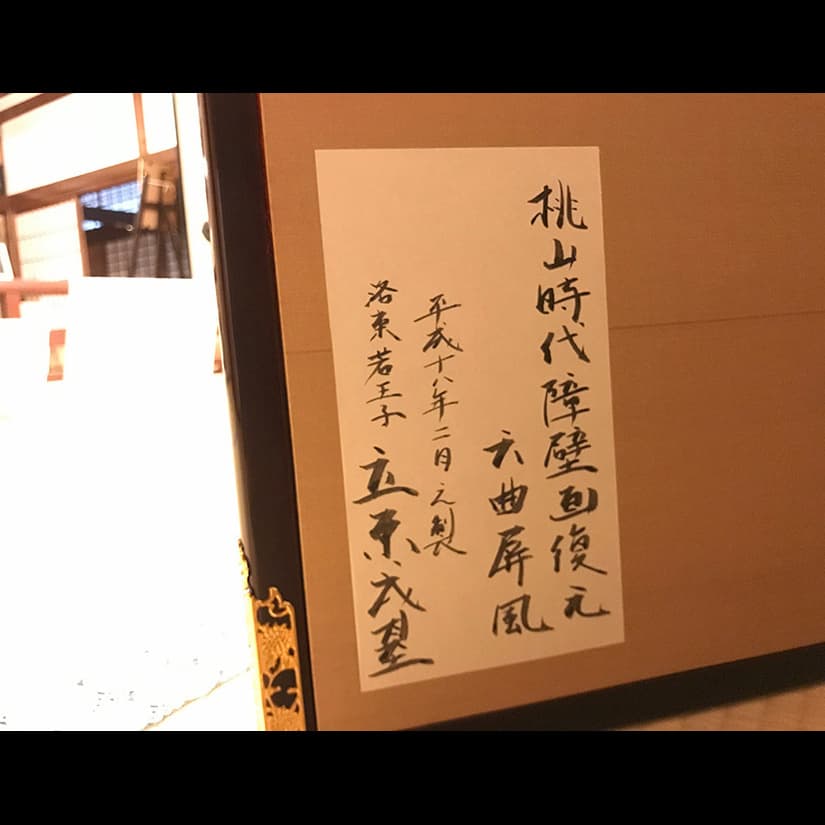 桃山時代障壁画復元
六曲屏風
平成十八年二月元製
洛東若王子